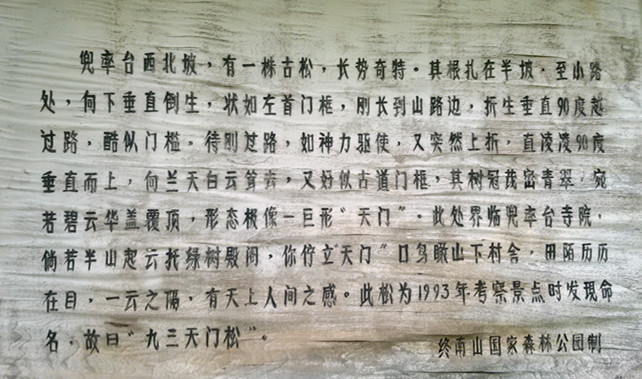 兜率台西北坡，有一株古松，长势奇特。其根扎在半坡，至小路
处，向下垂直倒生，状如左首门框，刚长到山路边，折生垂直90度越
过路，酷似门槛。待刚过路，如神力驱使，又突然上折，直凌凌90度
垂直而上，向兰天白云耸去，又好似古道门框，其树冠茂密青翠，宛
若碧云华盖覆顶，形态极像一巨形“天门”。此处界临兜率台寺院，
倘若半山起云托绿树殿阁，你伫立“天门”口鸟瞰山下村舍，田陌历历
在目，一云之隔，有天上人间之感。此松为1993年考察景点时发现命
名，故曰“九三天门松”。
终南山国家森林公园制